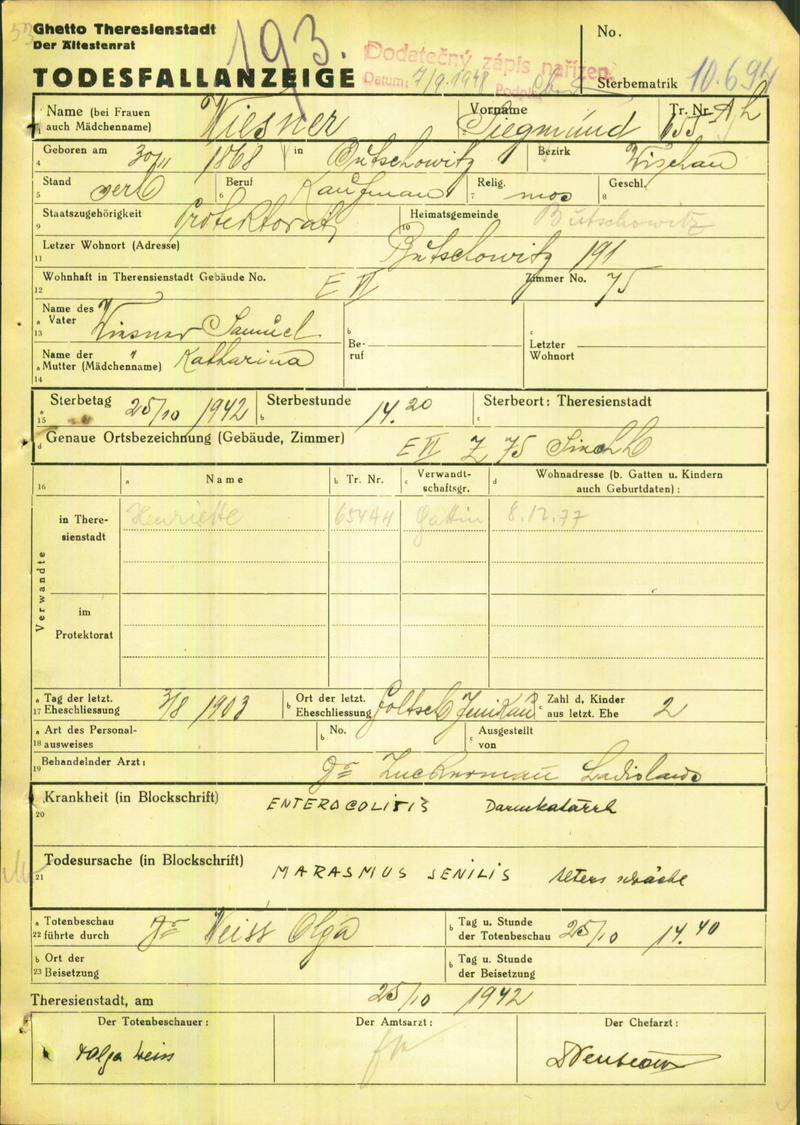 Ghetto Theresienstadt
Der Ältestenrat
TODESFALLANZEIGE
193.
Dodatečný zápis nařízen
Datum: 7/9.1948 Podpis
No.
Sterbematrik 10.694
Name (bei Frauen auch Mädchenname) Wiesner Vorname Siegmund Tr. Nr.
4 Geboren am 30/11 1868 in Butschowitz Bezirk Wischau
5 Stand verh 6 Beruf Kaufman 7 Relig. mos 8 Geschl.
9 Staatszugehörigkeit Protektorat 10 Heimatsgemeinde Butschowitz
11 Letzer Wohnort (Adresse) Butschowitz 191
12 Wohnhaft in Theresienstadt Gebäude No. E VI Zimmer No. 75
a 13 Name des Vater Wiesner Samuel b Beruf c Letzter Wohnort
a 14 Name der Mutter (Mädchenname) " Katharina
a 15 Sterbetag 25/10 1942 b Sterbestunde 14.20 c Sterbeort: Theresienstadt
d Genaue Ortsbezeichnung (Gebäude, Zimmer) E VI Z 75
16 a Name b Tr. Nr. c Verwandtschaftsgr. d Wohnadresse (b. Gatten u. Kindern auch Geburtdaten):
Verwandte
in Theresienstadt Henriette 65444 Gattin 8.12.77
im Protektorat
a 17 Tag der letzt. Eheschliessung 3/8 1903 b Ort der letzt. Eheschliessung Goltsch Jenikau c Zahl d. Kinder aus letzt. Ehe 2
a 18 Art des Personalausweises b No. c Ausgestellt von
19 Behandelnder Arzt: Dr Zuckermann Ladislaus
20 Krankheit (in Blockschrift) ENTEROCOLITIS Darmkatarrh
21 Todesursache (in Blockschrift) MARASMUS SENILIS Altersschwäche
a 22 Totenbeschau führte durch Dr Weiss Olga b Tag u. Stunde der Totenbeschau 25/10 14.40
b 23 Ort der Beisetzung b Tag u. Stunde der Beisetzung
Theresienstadt, am 25/10 1942
Der Totenbeschauer: Der Amtsarzt: Der Chefarzt:
Olga Weiss